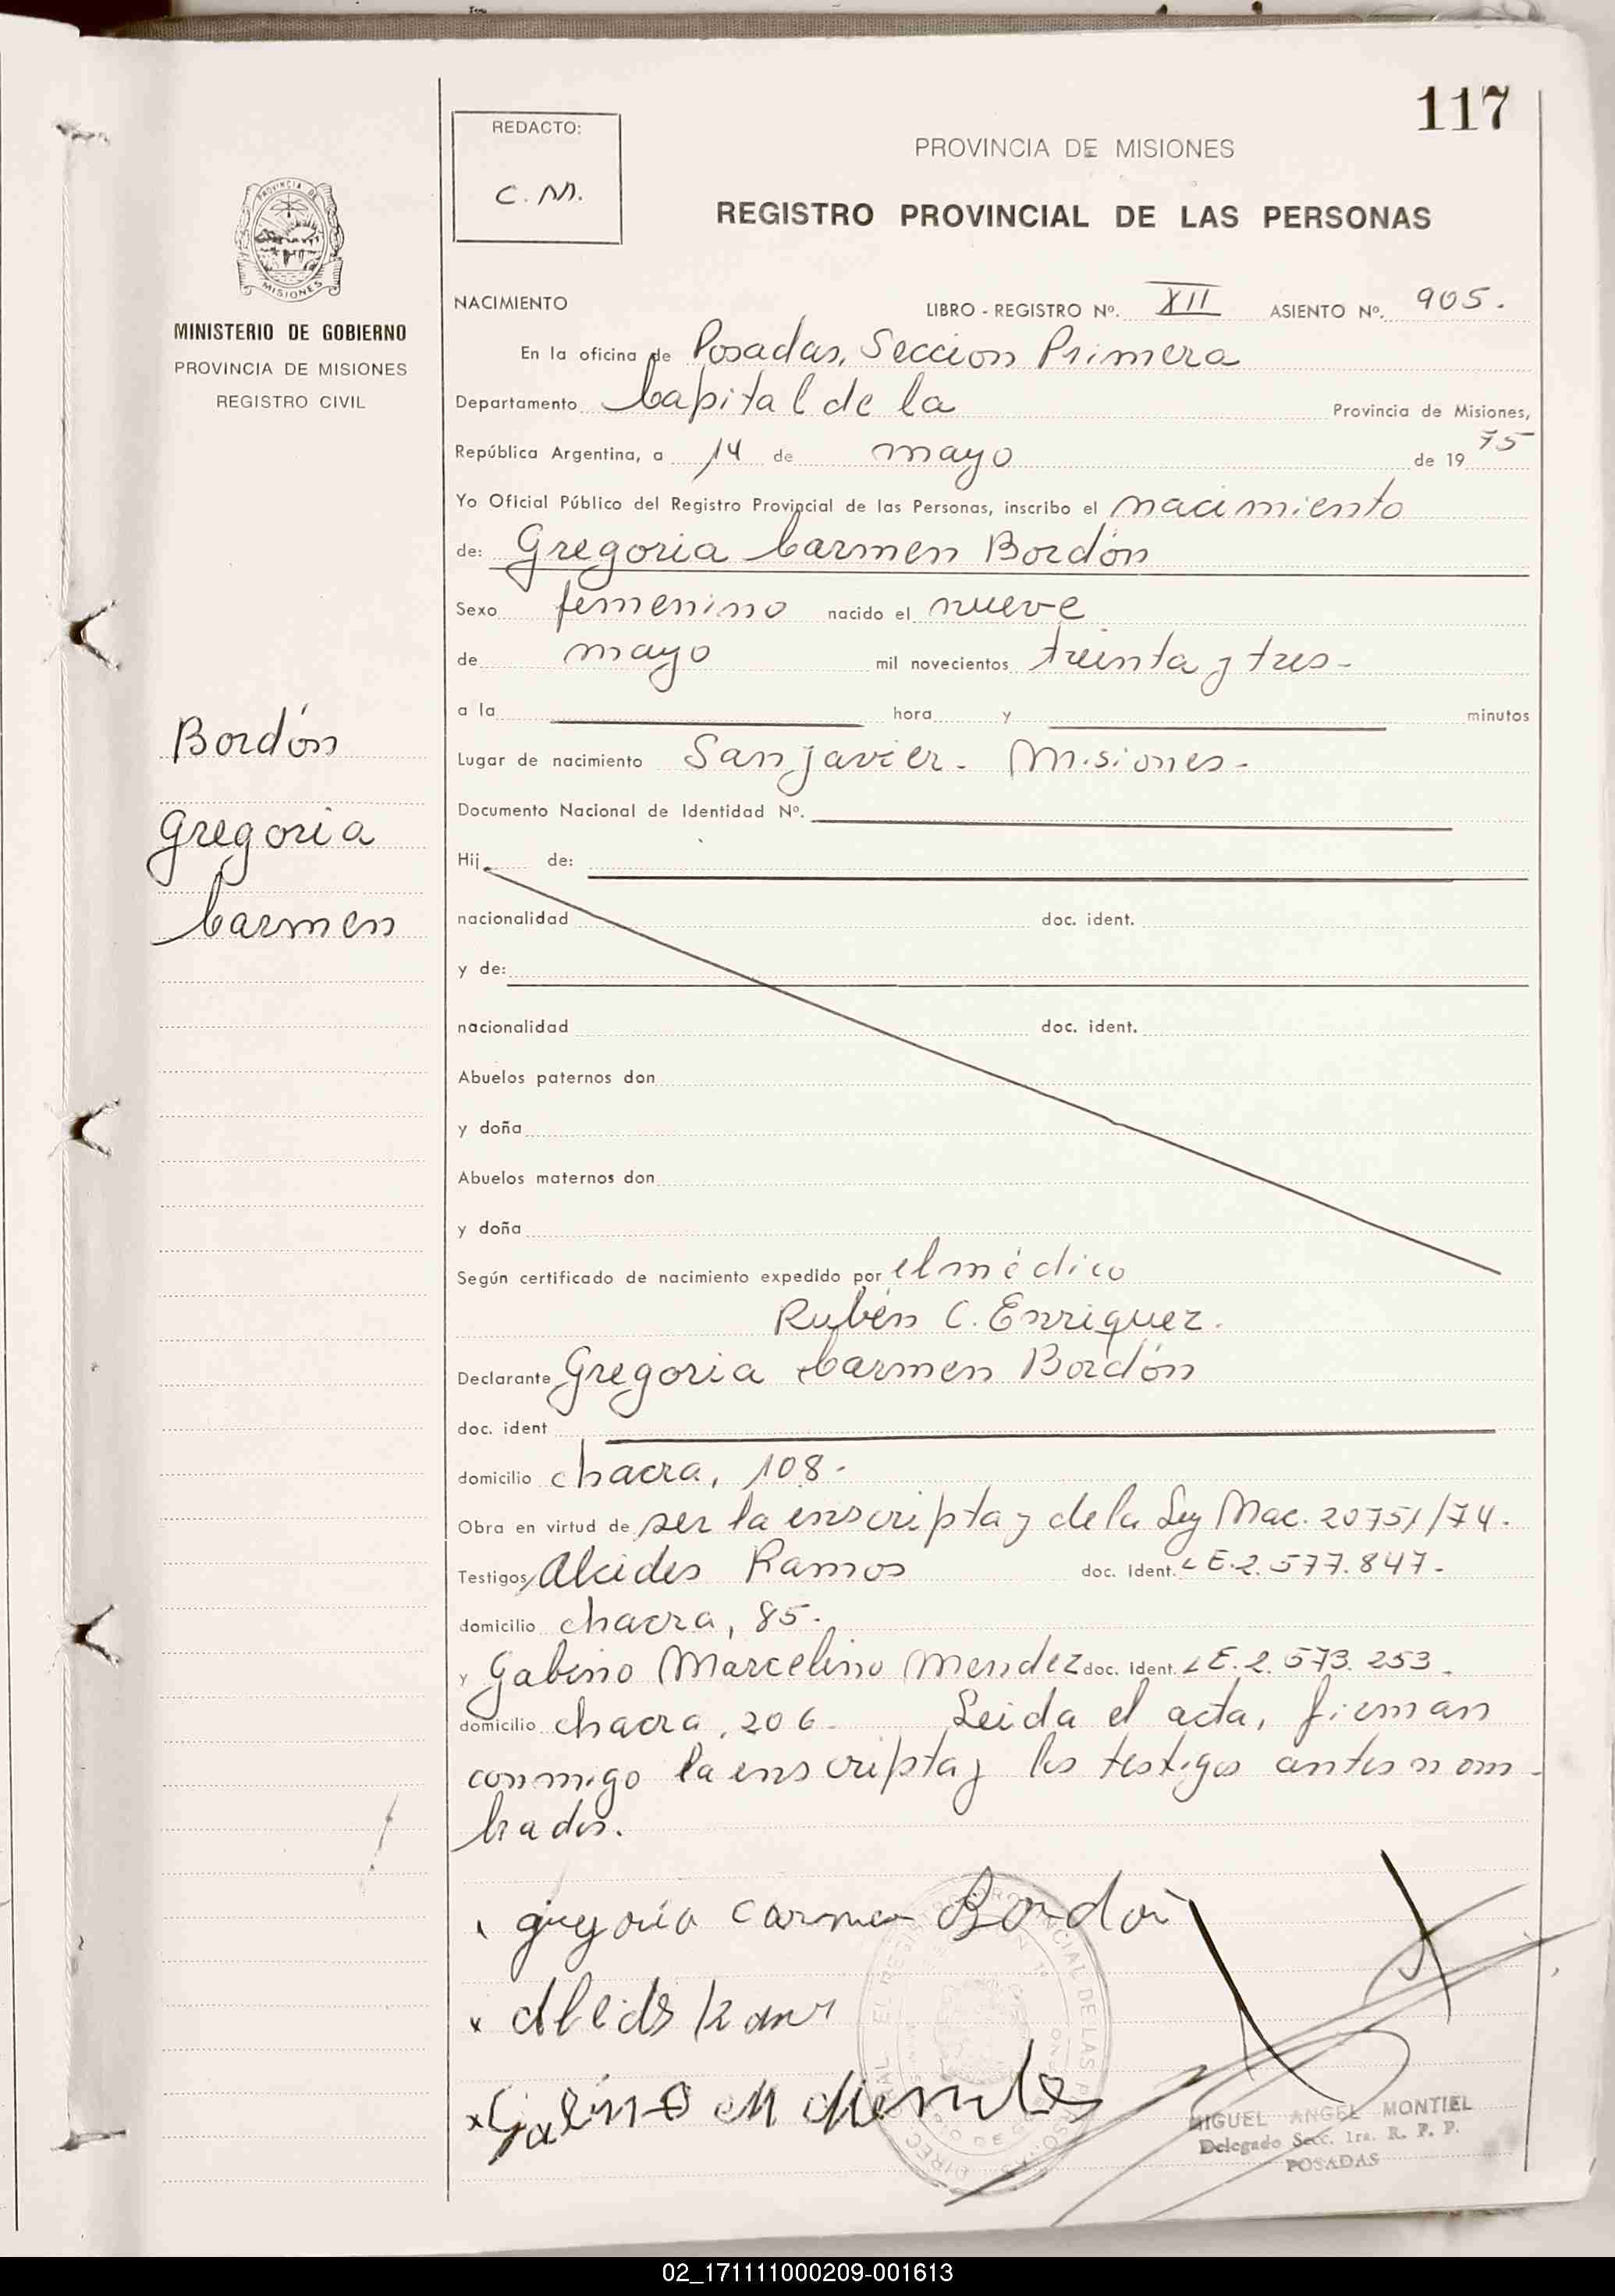 117
REDACTO:
C. M.
PROVINCIA DE MISIONES
REGISTRO PROVINCIAL DE LAS PERSONAS
PROVINCIA DE
MISIONES
MINISTERIO DE GOBIERNO
PROVINCIA DE MISIONES
REGISTRO CIVIL
NACIMIENTO LIBRO - REGISTRO Nº. XII ASIENTO Nº. 905.
En la oficina de Posadas, Seccion Primera
Departamento Capital de la Provincia de Misiones,
República Argentina, a 14 de mayo de 19 75
Yo Oficial Público del Registro Provincial de las Personas, inscribo el nacimiento
de: Gregoria Carmen Bordón
Sexo femenino nacido el nueve
de mayo mil novecientos treinta y tres-
a la hora y minutos
Bordón
Gregoria
Carmen
Lugar de nacimiento San Javier. Misiones-
Documento Nacional de Identidad Nº.
Hij de:
nacionalidad doc. ident.
y de:
nacionalidad doc. ident.
Abuelos paternos don
y doña
Abuelos maternos don
y doña
Según certificado de nacimiento expedido por el médico
Rubén C. Enriquez.
Declarante Gregoria Carmen Bordón
doc. ident
domicilio chacra, 108-
Obra en virtud de ser la enscripta y de la Ley Nac. 20751/74.
Testigos, Alcides Ramos doc. Ident. LE.2.577.847-
domicilio chacra, 85-
y Gabino Marcelino Mendez doc. Ident. LE.2.573.253.
domicilio chacra, 206- Leida el acta, firman
conmigo la enscripta y los testigos antes nom-
brados.
x gregoria Carmen Bordon
x Alcides Ramos
x Gabino M Mendez
MIGUEL ANGEL MONTIEL
Delegado Secc. 1ra. R. P. P.
POSADAS
02_171111000209-001613